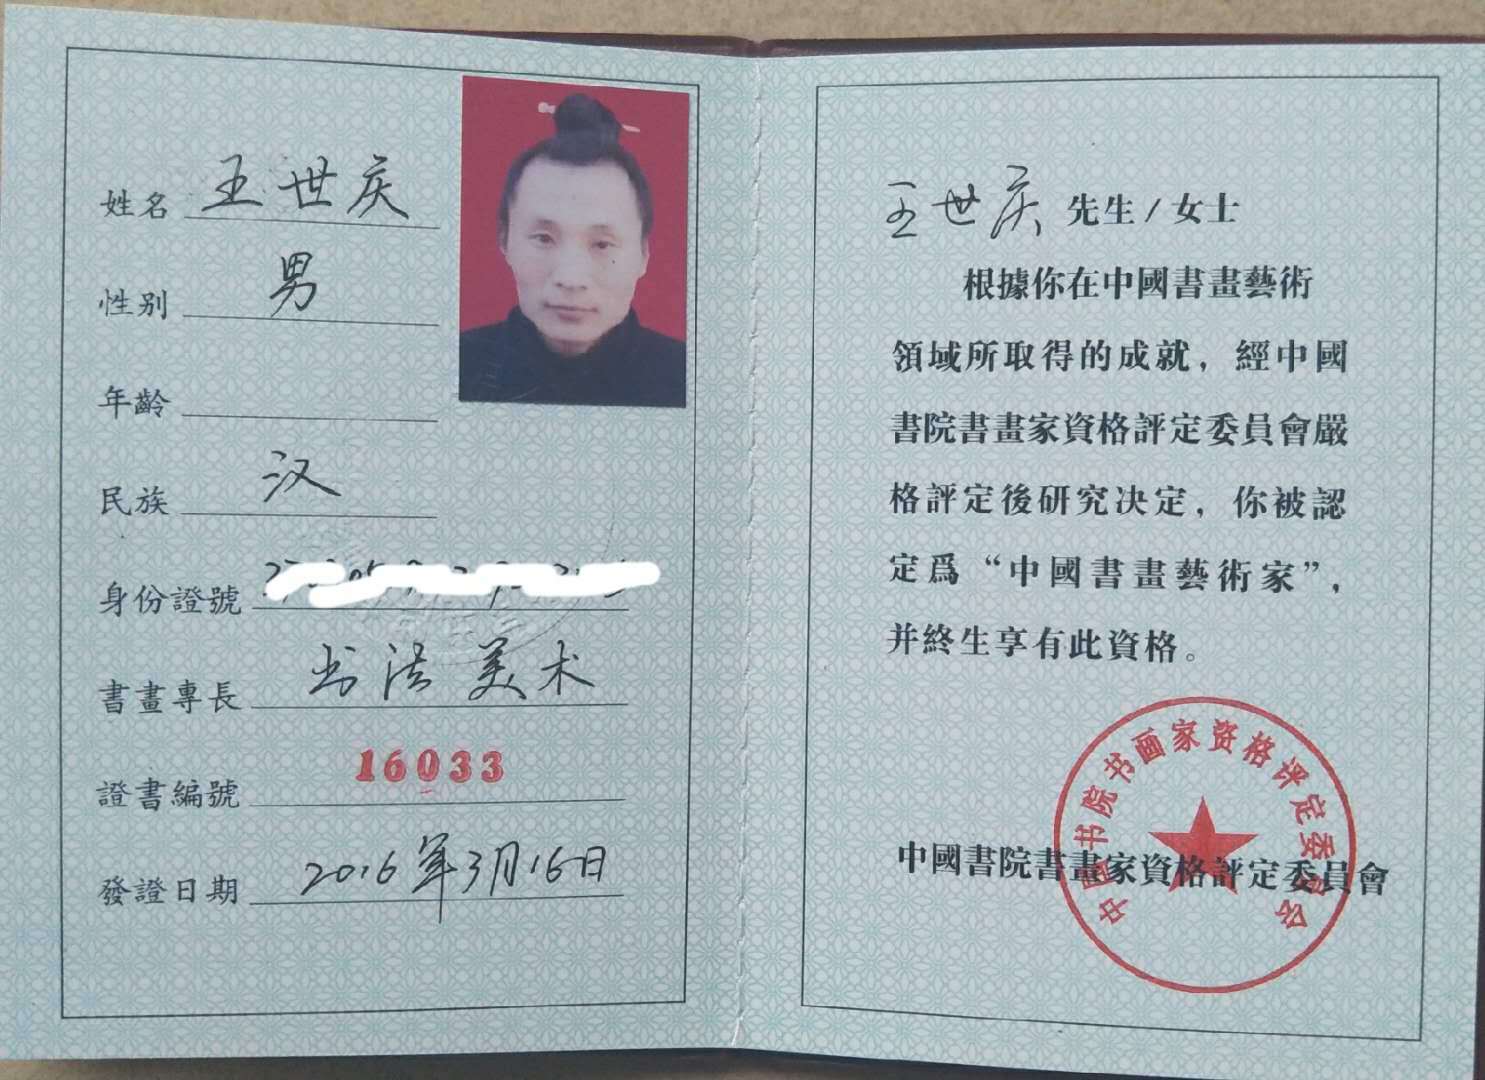 姓名 王世庆
性别 男
年齡
民族 汉
身份證號
書畫專長 书法 美术
證書編號 16033
發證日期 2016年3月16日
王世庆 先生/女士
根據你在中國書畫藝術
領域所取得的成就，經中國
書院書畫家資格評定委員會嚴
格評定後研究决定，你被認
定爲“中國書畫藝術家”，
并終生享有此資格。
中國書院書畫家資格評定委員會
中国书院书画家资格评定委员会